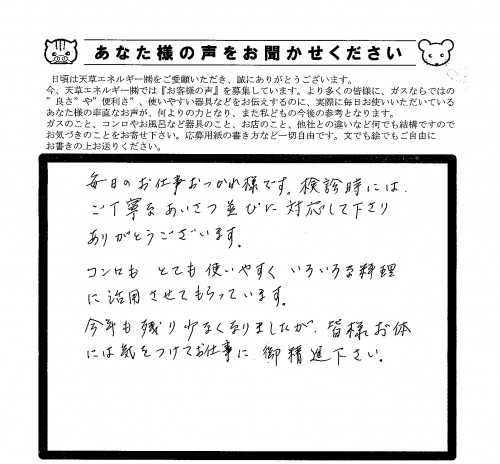 あなた様の声をお聞かせください
日頃は天草エネルギー㈱をご愛顧いただき、誠にありがとうございます。
今、天草エネルギー㈱では『お客様の声』を募集しています。より多くの皆様に、ガスならではの
"良さ"や"便利さ"、使いやすい器具などをお伝えするのに、実際に毎日お使いいただいている
あなた様の率直なお声が、何よりの力となり、また私どもの今後の参考となります。
ガスのこと、コンロやお風呂など器具のこと、お店のこと、他社との違いなど何でも結構ですので
お気づきのことをお寄せ下さい。応募用紙の書き方など一切自由です。文でも絵でもご自由に
お書きの上お送りください。
毎日のお仕事おつかれ様です。検診時には、
ご丁寧なあいさつ並びに対応して下さり
ありがとうございます。
コンロも とても使いやすく いろいろな料理
に活用させてもらっています。
今年も残り少なくなりましたが、皆様お体
には気をつけてお仕事に、御精進下さい。